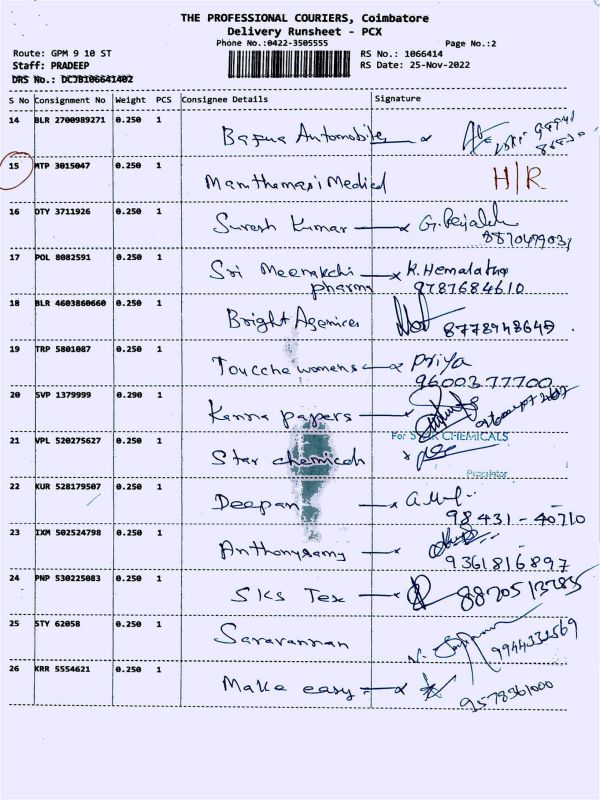 THE PROFESSIONAL COURIERS, Coimbatore
Delivery Runsheet - PCX
Phone No.:0422-3505555 Page No.:2
Route: GPM 9 10 ST RS No.: 1066414
Staff: PRADEEP RS Date: 25-Nov-2022
DRS No.: DCJB106641402
S No Consignment No Weight PCS Consignee Details Signature
14 BLR 2700989271 0.250 1 Automobiles
15 MTP 3015047 0.250 1 Medical H/R
16 OTY 3711926 0.250 1 Suresh Kumar
17 POL 8082591 0.250 1 Sri Meenakchi pharma K. Hemalatha
9787684610
18 BLR 4603860660 0.250 1 Bright Agenices
8778948649
19 TRP 5801087 0.250 1 Toucche womens Priya
9600377700
20 SVP 1379999 0.290 1 Kanna papers
21 VPL 520275627 0.250 1 Star chemicals For STAR CHEMICALS
Proprietor
22 KUR 528179507 0.250 1 Deepan
98431-40710
23 IXM 502524798 0.250 1 Anthonysamy
9361816897
24 PNP 530225083 0.250 1 SKS Tex
25 STY 62058 0.250 1 Saravannan
26 KRR 5554621 0.250 1 Make easy
9578361000